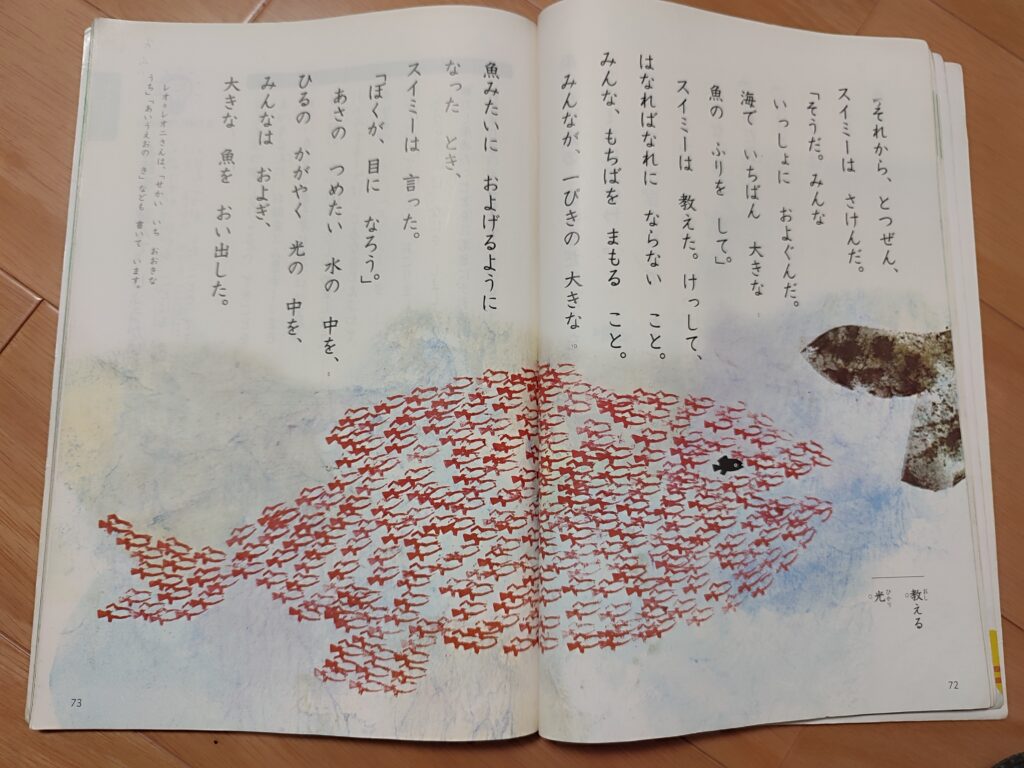 それから、とつぜん、
スイミーは さけんだ。
「そうだ。みんな
いっしょに およぐんだ。
海で いちばん 大きな
魚の ふりを して。」
スイミーは 教えた。けっして、
はなればなれに ならない こと。
みんな、もちばを まもる こと。
みんなが、一ぴきの 大きな
教える
おし
光
ひかり
72
魚みたいに およげるように
なった とき、
スイミーは 言った。
「ぼくが、目に なろう。」
あさの つめたい 水の 中を、
ひるの かがやく 光の 中を、
みんなは およぎ、
大きな 魚を おい出した。
レオ=レオニさんは、「せかい いち おおきな
うち」「あいうえおの き」なども 書いて います。
73